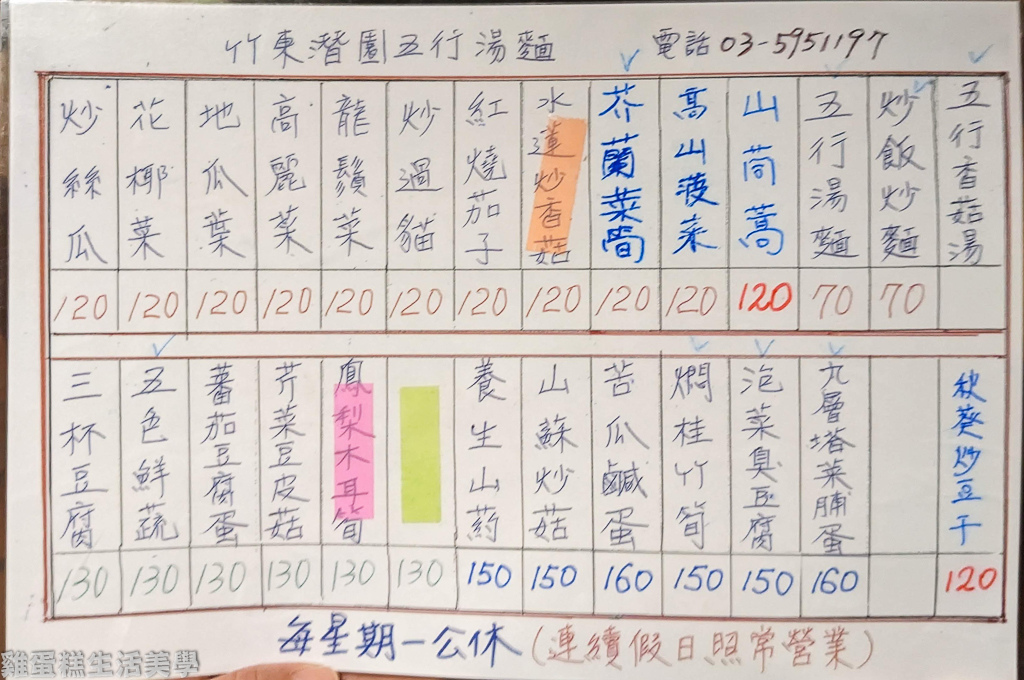 竹東潛園五行湯麵 電話 03-5951197
五行香菇湯
炒飯炒麵 70
五行湯麵 70
山茼蒿 120
高山菠菜 120
芥蘭菜筒 120
水蓮炒香菇 120
紅燒茄子 120
炒過貓 120
龍鬚菜 120
高麗菜 120
地瓜葉 120
花椰菜 120
炒絲瓜 120
秋葵炒豆干 120
九層塔菜脯蛋 160
泡菜臭豆腐 150
燜桂竹筍 150
苦瓜鹹蛋 160
山蘇炒菇 150
養生山葯 150
130
鳳梨木耳筍 130
芹菜豆皮菇 130
蕃茄豆腐蛋 130
五色鮮蔬 130
三杯豆腐 130
每星期一公休(連續假日照常營業)
雞蛋糕生活美學